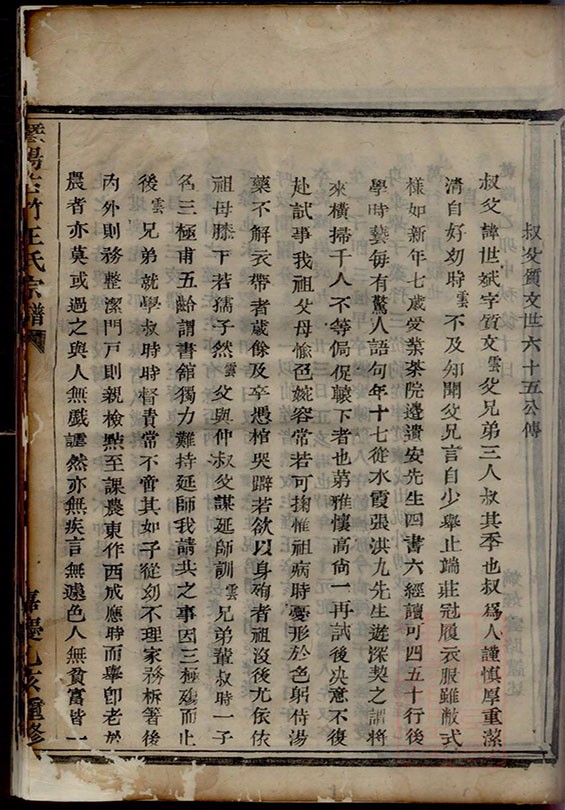 叔父質文世六十五公傳
叔父諱世斌字質文雲父兄弟三人叔其季也叔為人謹慎厚重潔
清自好幼時雲不及知聞父兄言自少舉止端莊冠履衣服雖敝式
樣如新年七歲受業茶院邊潰安先生四書六經讀可四五十行後
學時藝每有驚人語句年十七從水霞張淇九先生遊深契之謂將
來橫掃千人不等侷促轅下者也苐雅懷高尚一再試後决意不復
赴試事我祖父母愉色婉容常若可掬惟祖病時憂形於色躬侍湯
藥不解衣帶者歲餘及卒慿棺哭踴若欲以身殉者祖沒後尤依依
祖母膝下若孺子然雲父與仲叔父謀延師訓雲兄弟輩叔時一子
名三極甫五齡謂書舘獨力難持延師我請共之事因三極殤而止
後雲兄弟就學叔時時督責常不啻其如子從幼不理家務柝箸後
內外則務整潔門戶則親檢點至課農東作西成應時而舉卽老於
農者亦莫或過之與人無戲謔然亦無疾言無遽色人無貧富皆一
王氏宗譜
重修